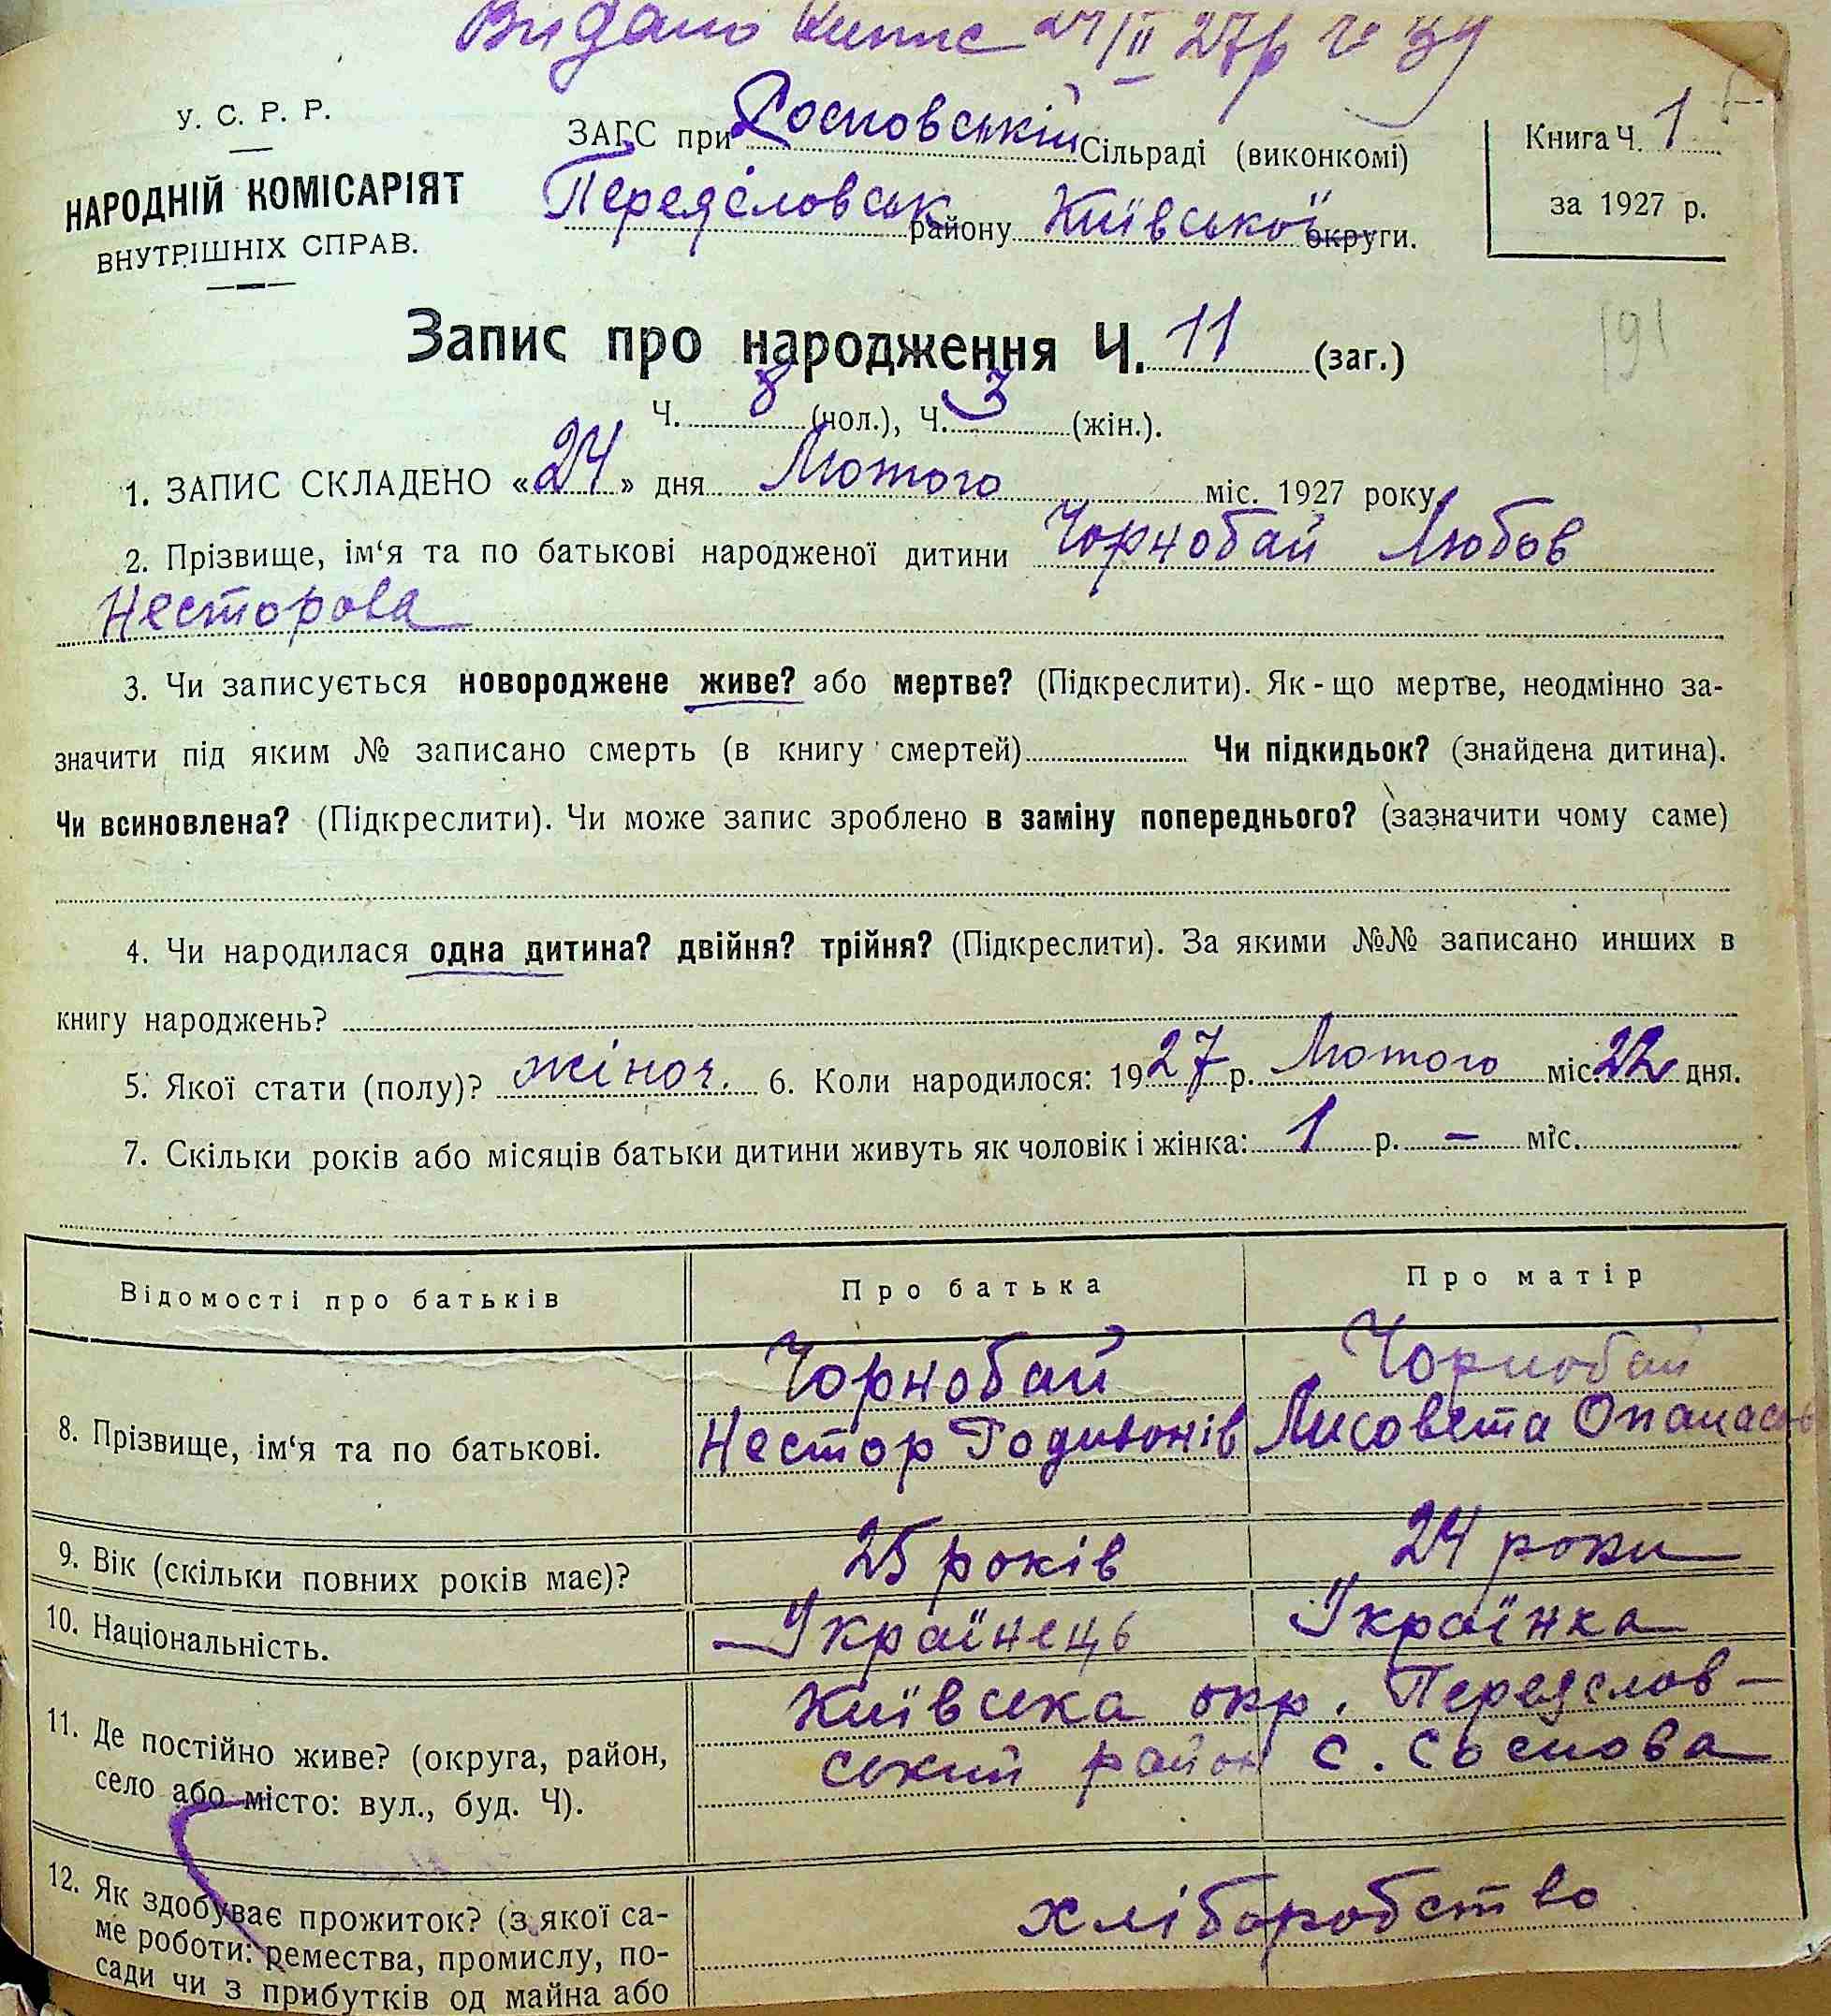 Видано Випис 24/II 27р № 39
У. С. Р. Р.
НАРОДНІЙ КОМІСАРІЯТ
ВНУТРІШНІХ СПРАВ.
ЗАГС при Сосновській Сільраді (виконкомі)
Переяславськ району Київської округи.
Книга Ч. 1
за 1927 р.
191
Запис про народження Ч. 11 (заг.)
Ч. 8 (чол.), Ч. 3 (жін.).
1. ЗАПИС СКЛАДЕНО «24» дня Лютого міс. 1927 року
2. Прізвище, ім‘я та по батькові народженої дитини Чорнобай Любов
Несторова
3. Чи записується новороджене живе? або мертве? (Підкреслити). Як-що мертве, неодмінно за-
значити під яким № записано смерть (в книгу смертей) Чи підкидьок? (знайдена дитина).
Чи всиновлена? (Підкреслити). Чи може запис зроблено в заміну попереднього? (зазначити чому саме)
4. Чи народилася одна дитина? двійня? трійня? (Підкреслити). За якими №№ записано инших в
книгу народжень?
5. Якої стати (полу)? жіноч. 6. Коли народилося: 1927 р. Лютого міс. 22 дня.
7. Скільки років або місяців батьки дитини живуть як чоловік і жінка: 1 р. – міс.
Відомості про батьків Про батька Про матір
8. Прізвище, ім‘я та по батькові. Чорнобай Нестор Родивонів Чорнобай Лисовета Опанасов
9. Вік (скільки повних років має)? 25 років 24 роки
10. Національність. Українець Українка
11. Де постійно живе? (округа, район, Київська окр. Переяслов-
село або місто: вул., буд. Ч). ський район с. Соснова
12. Як здобуває прожиток? (з якої са- хліборобство
ме роботи: ремества, промислу, по-
сади чи з прибутків од майна або